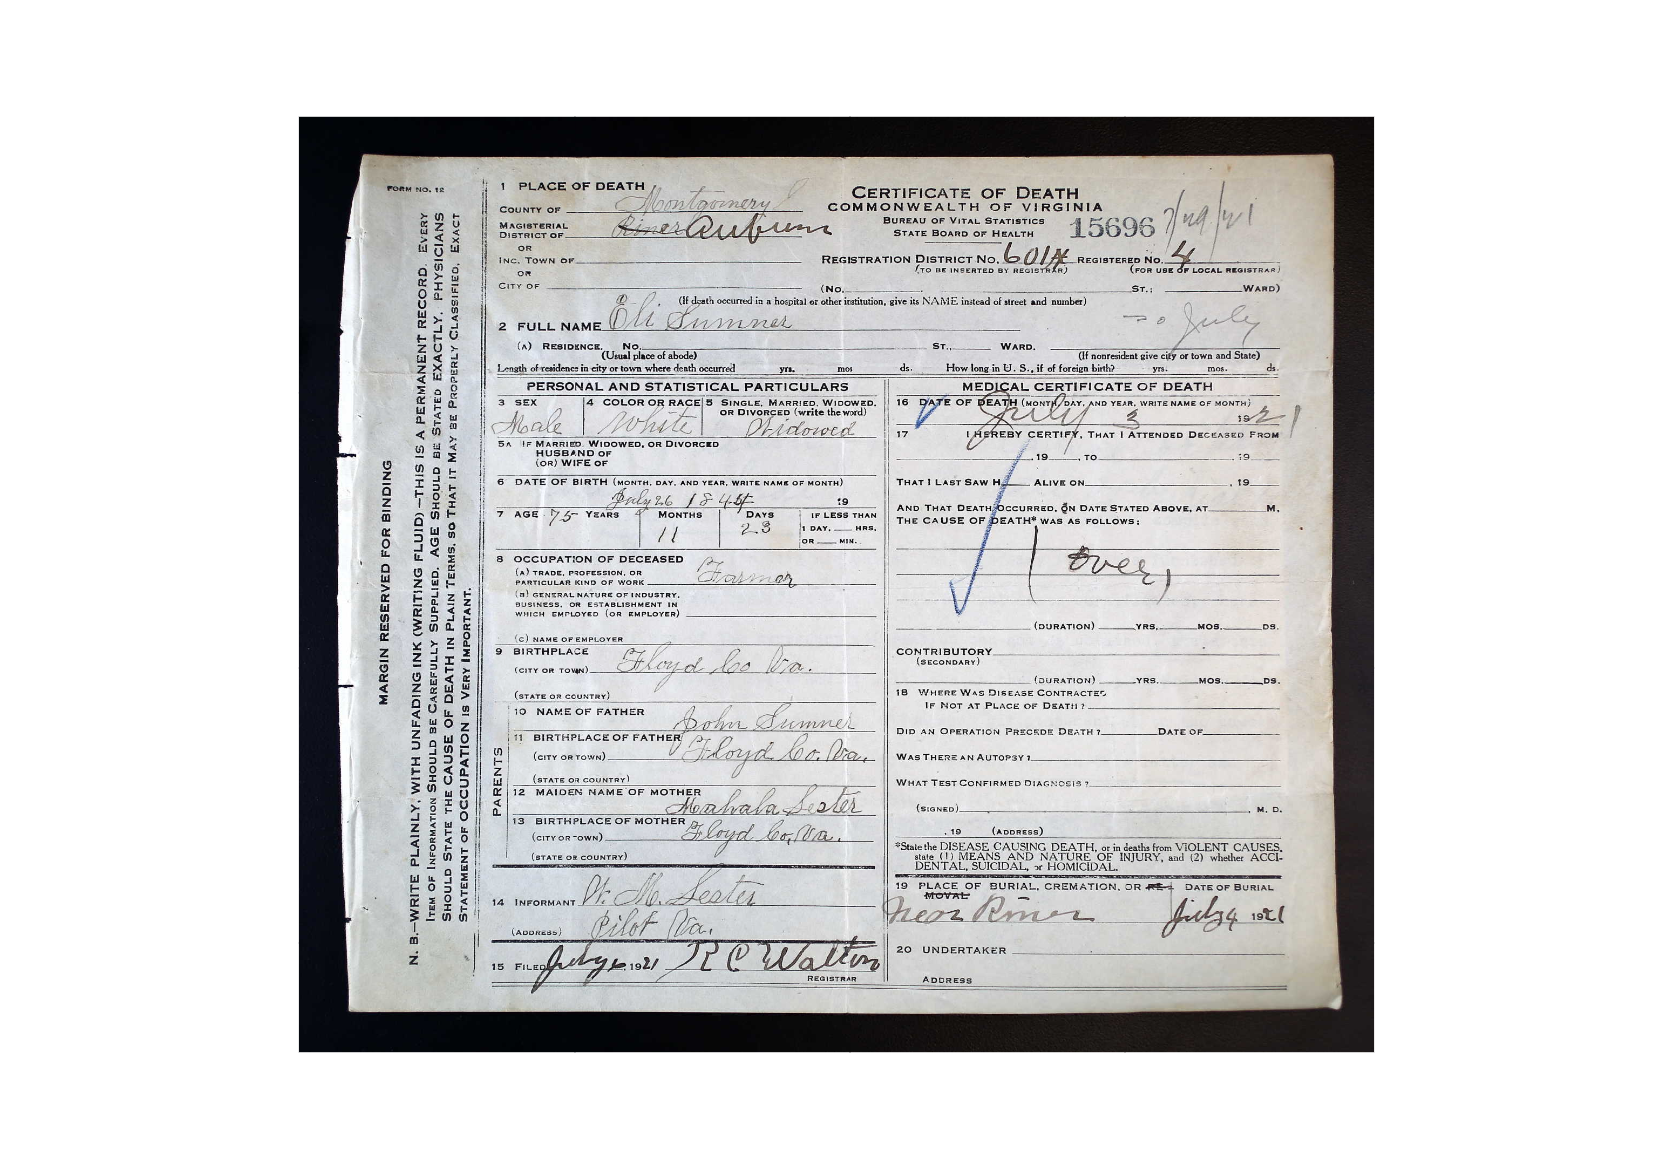 FORM NO. 12
MARGIN RESERVED FOR BINDING
N. B.—WRITE PLAINLY, WITH UNFADING INK (WRITING FLUID)—THIS IS A PERMANENT RECORD. EVERY
ITEM OF INFORMATION SHOULD BE CAREFULLY SUPPLIED. AGE SHOULD BE STATED EXACTLY. PHYSICIANS
SHOULD STATE THE CAUSE OF DEATH IN PLAIN TERMS, SO THAT IT MAY BE PROPERLY CLASSIFIED. EXACT
STATEMENT OF OCCUPATION IS VERY IMPORTANT.
1 PLACE OF DEATH
COUNTY OF Montgomery
MAGISTERIAL DISTRICT OF Riner Auburn
OR
INC. TOWN OF
OR
CITY OF
CERTIFICATE OF DEATH
COMMONWEALTH OF VIRGINIA
BUREAU OF VITAL STATISTICS
STATE BOARD OF HEALTH
15696 7/29/21
REGISTRATION DISTRICT NO. 601A REGISTERED NO. 4
(TO BE INSERTED BY REGISTRAR) (FOR USE OF LOCAL REGISTRAR)
(No. ST.; WARD)
(If death occurred in a hospital or other institution, give its NAME instead of street and number)
2 FULL NAME Eli Sumner July
(A) RESIDENCE. No. ST., WARD.
(Usual place of abode) (If nonresident give city or town and State)
Length of residence in city or town where death occurred yrs. mos ds. How long in U. S., if of foreign birth? yrs. mos. ds.
PERSONAL AND STATISTICAL PARTICULARS
3 SEX 4 COLOR OR RACE 5 SINGLE, MARRIED, WIDOWED, OR DIVORCED (write the word)
Male White Widowed
5A IF MARRIED, WIDOWED, OR DIVORCED
HUSBAND OF
(OR) WIFE OF
6 DATE OF BIRTH (MONTH, DAY, AND YEAR, WRITE NAME OF MONTH)
July 26 184 19
7 AGE 75 YEARS MONTHS 11 DAYS 23 IF LESS THAN
1 DAY, HRS.
OR MIN.
8 OCCUPATION OF DECEASED
(A) TRADE, PROFESSION, OR
PARTICULAR KIND OF WORK Farmer
(B) GENERAL NATURE OF INDUSTRY,
BUSINESS, OR ESTABLISHMENT IN
WHICH EMPLOYED (OR EMPLOYER)
(C) NAME OF EMPLOYER
9 BIRTHPLACE
(CITY OR TOWN) Floyd Co Va.
(STATE OR COUNTRY)
PARENTS
10 NAME OF FATHER John Sumner
11 BIRTHPLACE OF FATHER
(CITY OR TOWN) Floyd Co. Va.
(STATE OR COUNTRY)
12 MAIDEN NAME OF MOTHER Mahala Lester
13 BIRTHPLACE OF MOTHER
(CITY OR TOWN) Floyd Co, Va.
(STATE OR COUNTRY)
14 INFORMANT W. M. Lester
(ADDRESS) Pilot Va.
15 FILED July 6, 1921 R C Walton
REGISTRAR
MEDICAL CERTIFICATE OF DEATH
16 DATE OF DEATH (MONTH, DAY, AND YEAR, WRITE NAME OF MONTH)
July 3 1921
17 I HEREBY CERTIFY, THAT I ATTENDED DECEASED FROM
, 19 , TO , 19
THAT I LAST SAW H ALIVE ON , 19
AND THAT DEATH OCCURRED, ON DATE STATED ABOVE, AT M.
THE CAUSE OF DEATH* WAS AS FOLLOWS:
(over)
(DURATION) YRS. MOS. DS.
CONTRIBUTORY
(SECONDARY)
(DURATION) YRS. MOS. DS.
18 WHERE WAS DISEASE CONTRACTED
IF NOT AT PLACE OF DEATH?
DID AN OPERATION PRECEDE DEATH? DATE OF
WAS THERE AN AUTOPSY?
WHAT TEST CONFIRMED DIAGNOSIS?
(SIGNED) M. D.
, 19 (ADDRESS)
*State the DISEASE CAUSING DEATH, or in deaths from VIOLENT CAUSES,
state (1) MEANS AND NATURE OF INJURY, and (2) whether ACCI-
DENTAL, SUICIDAL, or HOMICIDAL.
19 PLACE OF BURIAL, CREMATION, OR RE- DATE OF BURIAL
MOVAL
Near Riner July 4 1921
20 UNDERTAKER
ADDRESS